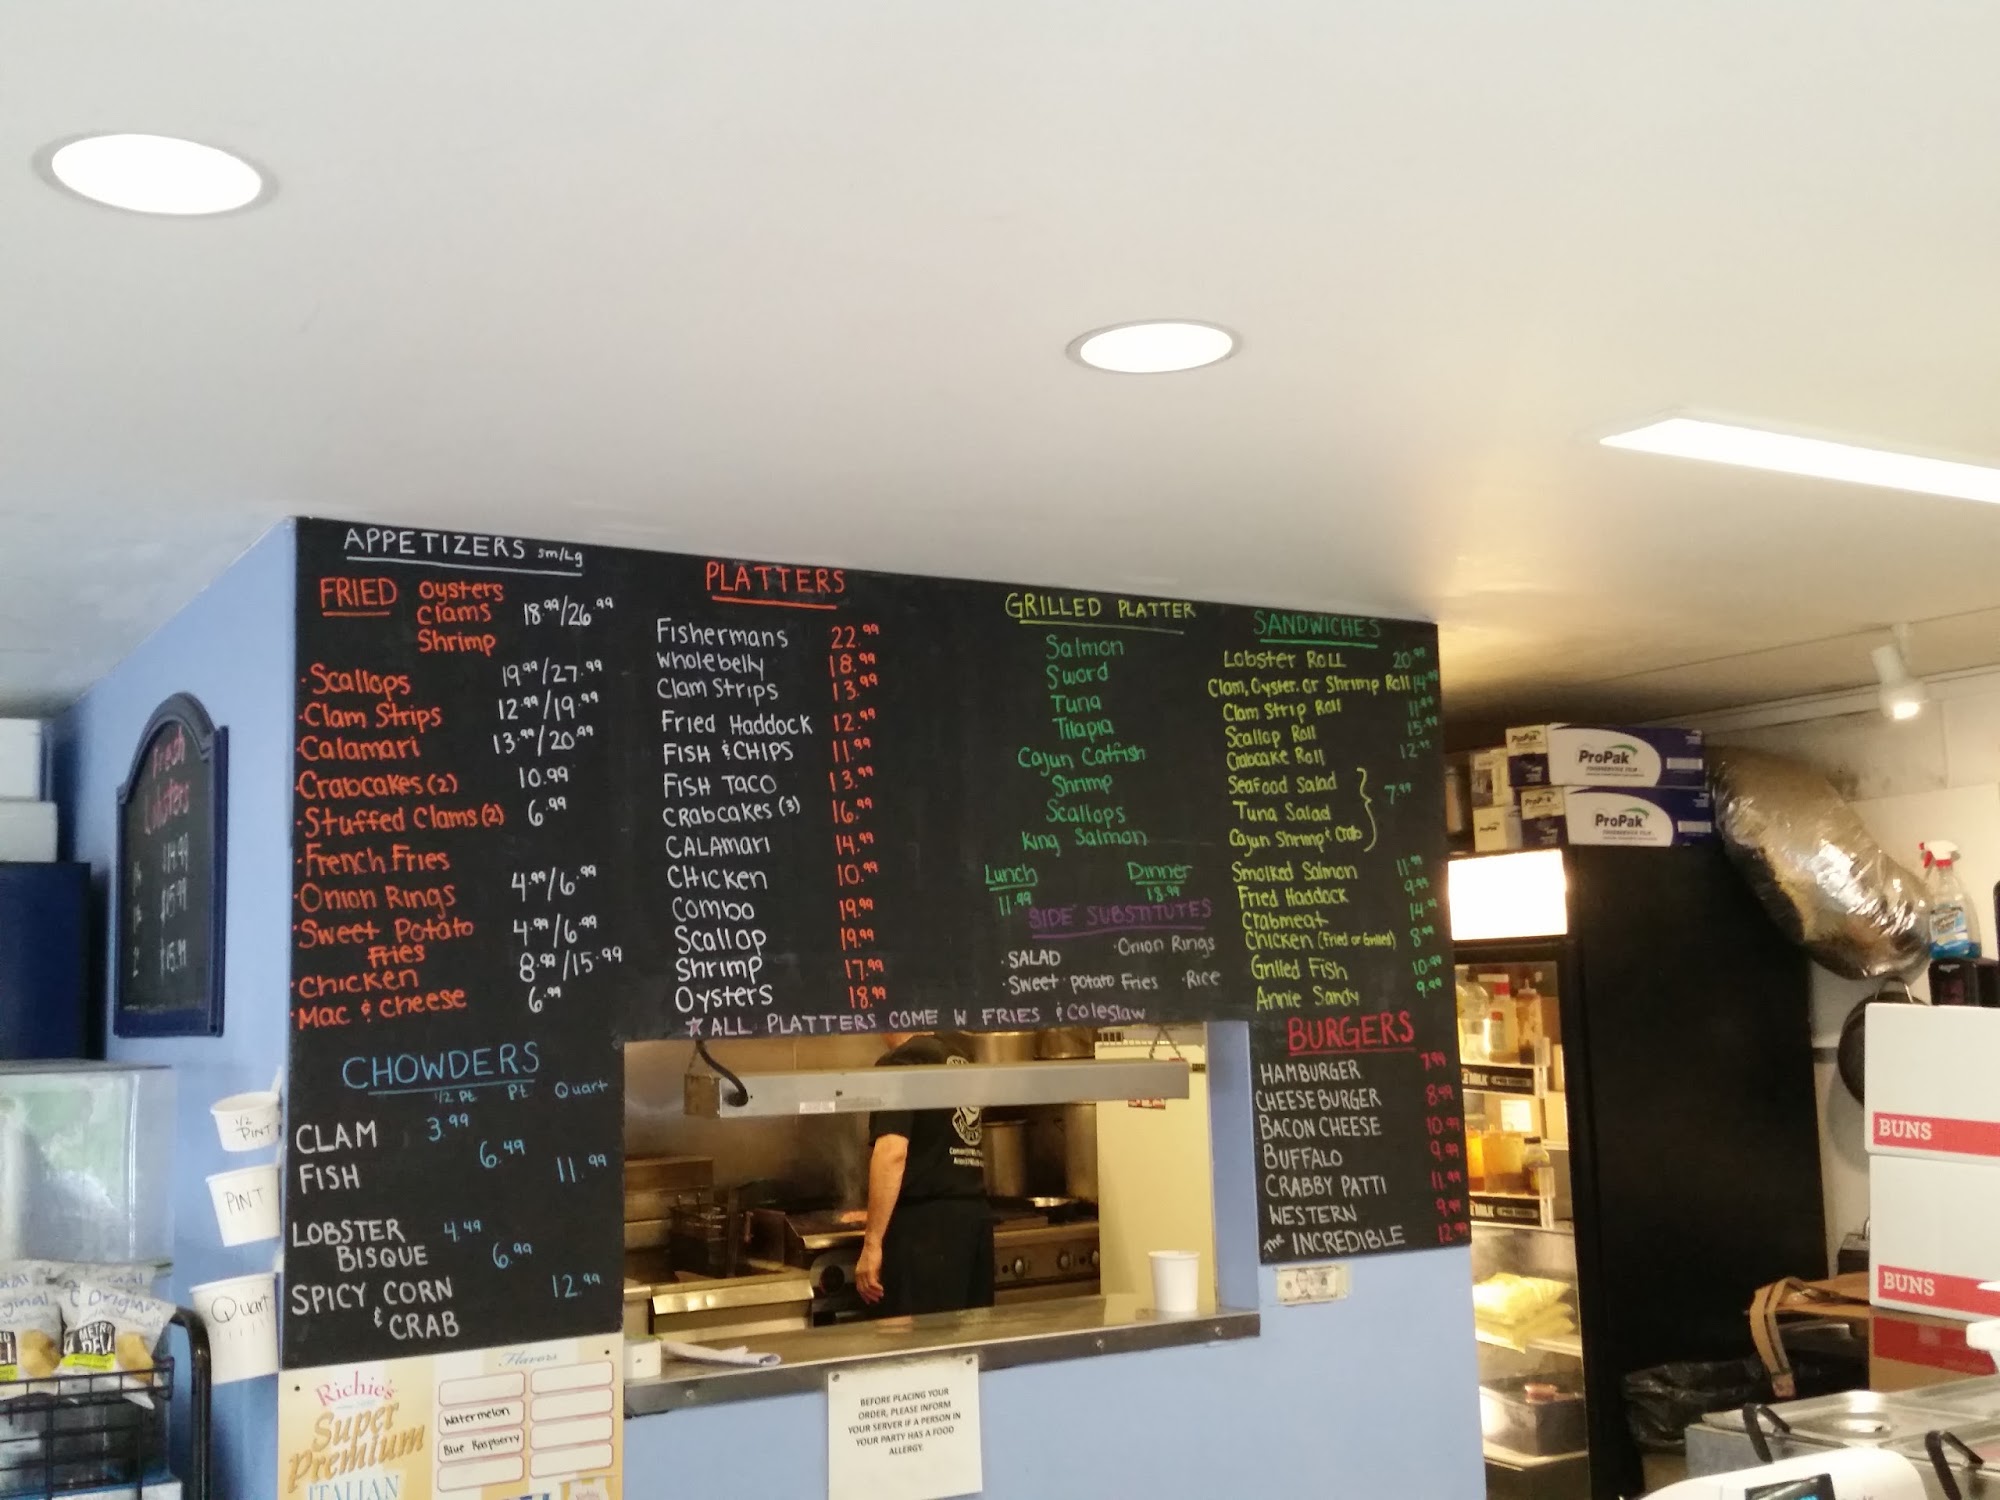 APPETIZERS sm/Lg
FRIED Oysters
Clams 18.99/26.99
Shrimp
·Scallops 19.99/27.99
·Clam Strips 12.99/19.99
·Calamari 13.99/20.99
·Crabcakes (2) 10.99
·Stuffed Clams (2) 6.99
·French Fries
·Onion Rings 4.99/6.99
·Sweet Potato Fries 4.99/6.99
·Chicken 8.99/15.99
·Mac & Cheese 6.99
CHOWDERS
1/2 Pt Pt Quart
CLAM 3.99
6.49
FISH 11.99
LOBSTER 4.49
BISQUE 6.99
SPICY CORN 12.99
& CRAB
PLATTERS
Fishermans 22.99
Wholebelly 18.99
Clam Strips 13.99
Fried Haddock 12.99
FISH & CHIPS 11.99
FISH TACO 13.99
CRABCAKES (3) 16.99
CALAMARI 14.99
CHICKEN 10.99
COMBO 19.99
Scallop 19.99
Shrimp 17.99
Oysters 18.99
☆ALL PLATTERS COME W FRIES & Coleslaw
GRILLED PLATTER
Salmon
Sword
Tuna
Tilapia
Cajun Catfish
Shrimp
Scallops
King Salmon
Lunch Dinner
11.99 18.99
SIDE SUBSTITUTES
·SALAD ·Onion Rings
·Sweet potato Fries ·Rice
SANDWICHES
Lobster Roll 20.99
Clam, Oyster, or Shrimp Roll 14.99
Clam Strip Roll 11.99
Scallop Roll 15.99
Crabcake Roll 12.99
Seafood Salad
Tuna Salad 7.99
Cajun Shrimp & Crab
Smolked Salmon 11.99
Fried Haddock 9.99
Crabmeat 14.99
Chicken (Fried or Grilled) 8.99
Grilled Fish 10.99
Annie Sandy 9.99
BURGERS
HAMBURGER 7.99
CHEESEBURGER 8.99
BACON CHEESE 10.99
BUFFALO 9.99
CRABBY PATTI 11.99
WESTERN 9.99
THE INCREDIBLE 12.99
Fresh
Lobsters
1/2 PINT
PINT
Quart
Richie's
Super
Premium
ITALIAN
Flavors
Watermelon
Blue Raspberry
BEFORE PLACING YOUR
ORDER, PLEASE INFORM
YOUR SERVER IF A PERSON IN
YOUR PARTY HAS A FOOD
ALLERGY.
ProPak
ProPak
ProPak
BUNS
BUNS
Original
METRO
DELI